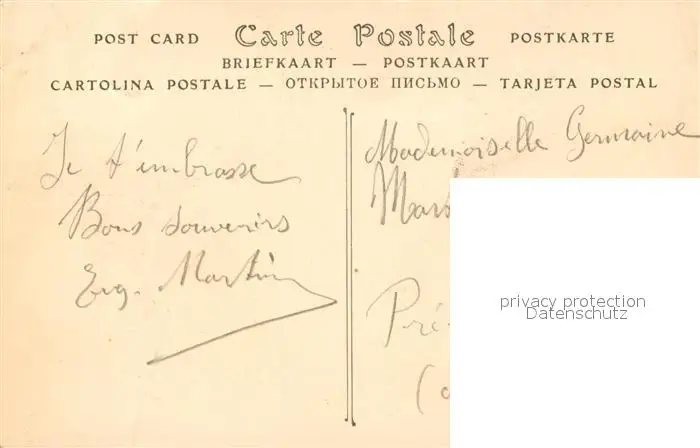 POST CARD Carte Postale POSTKARTE
BRIEFKAART — POSTKAART
CARTOLINA POSTALE — ОТКРЫТОЕ ПИСЬМО — TARJETA POSTAL
Je t'embrasse
Bons souvenirs
Eug. Martin
Mademoiselle Germaine
privacy protection
Datenschutz